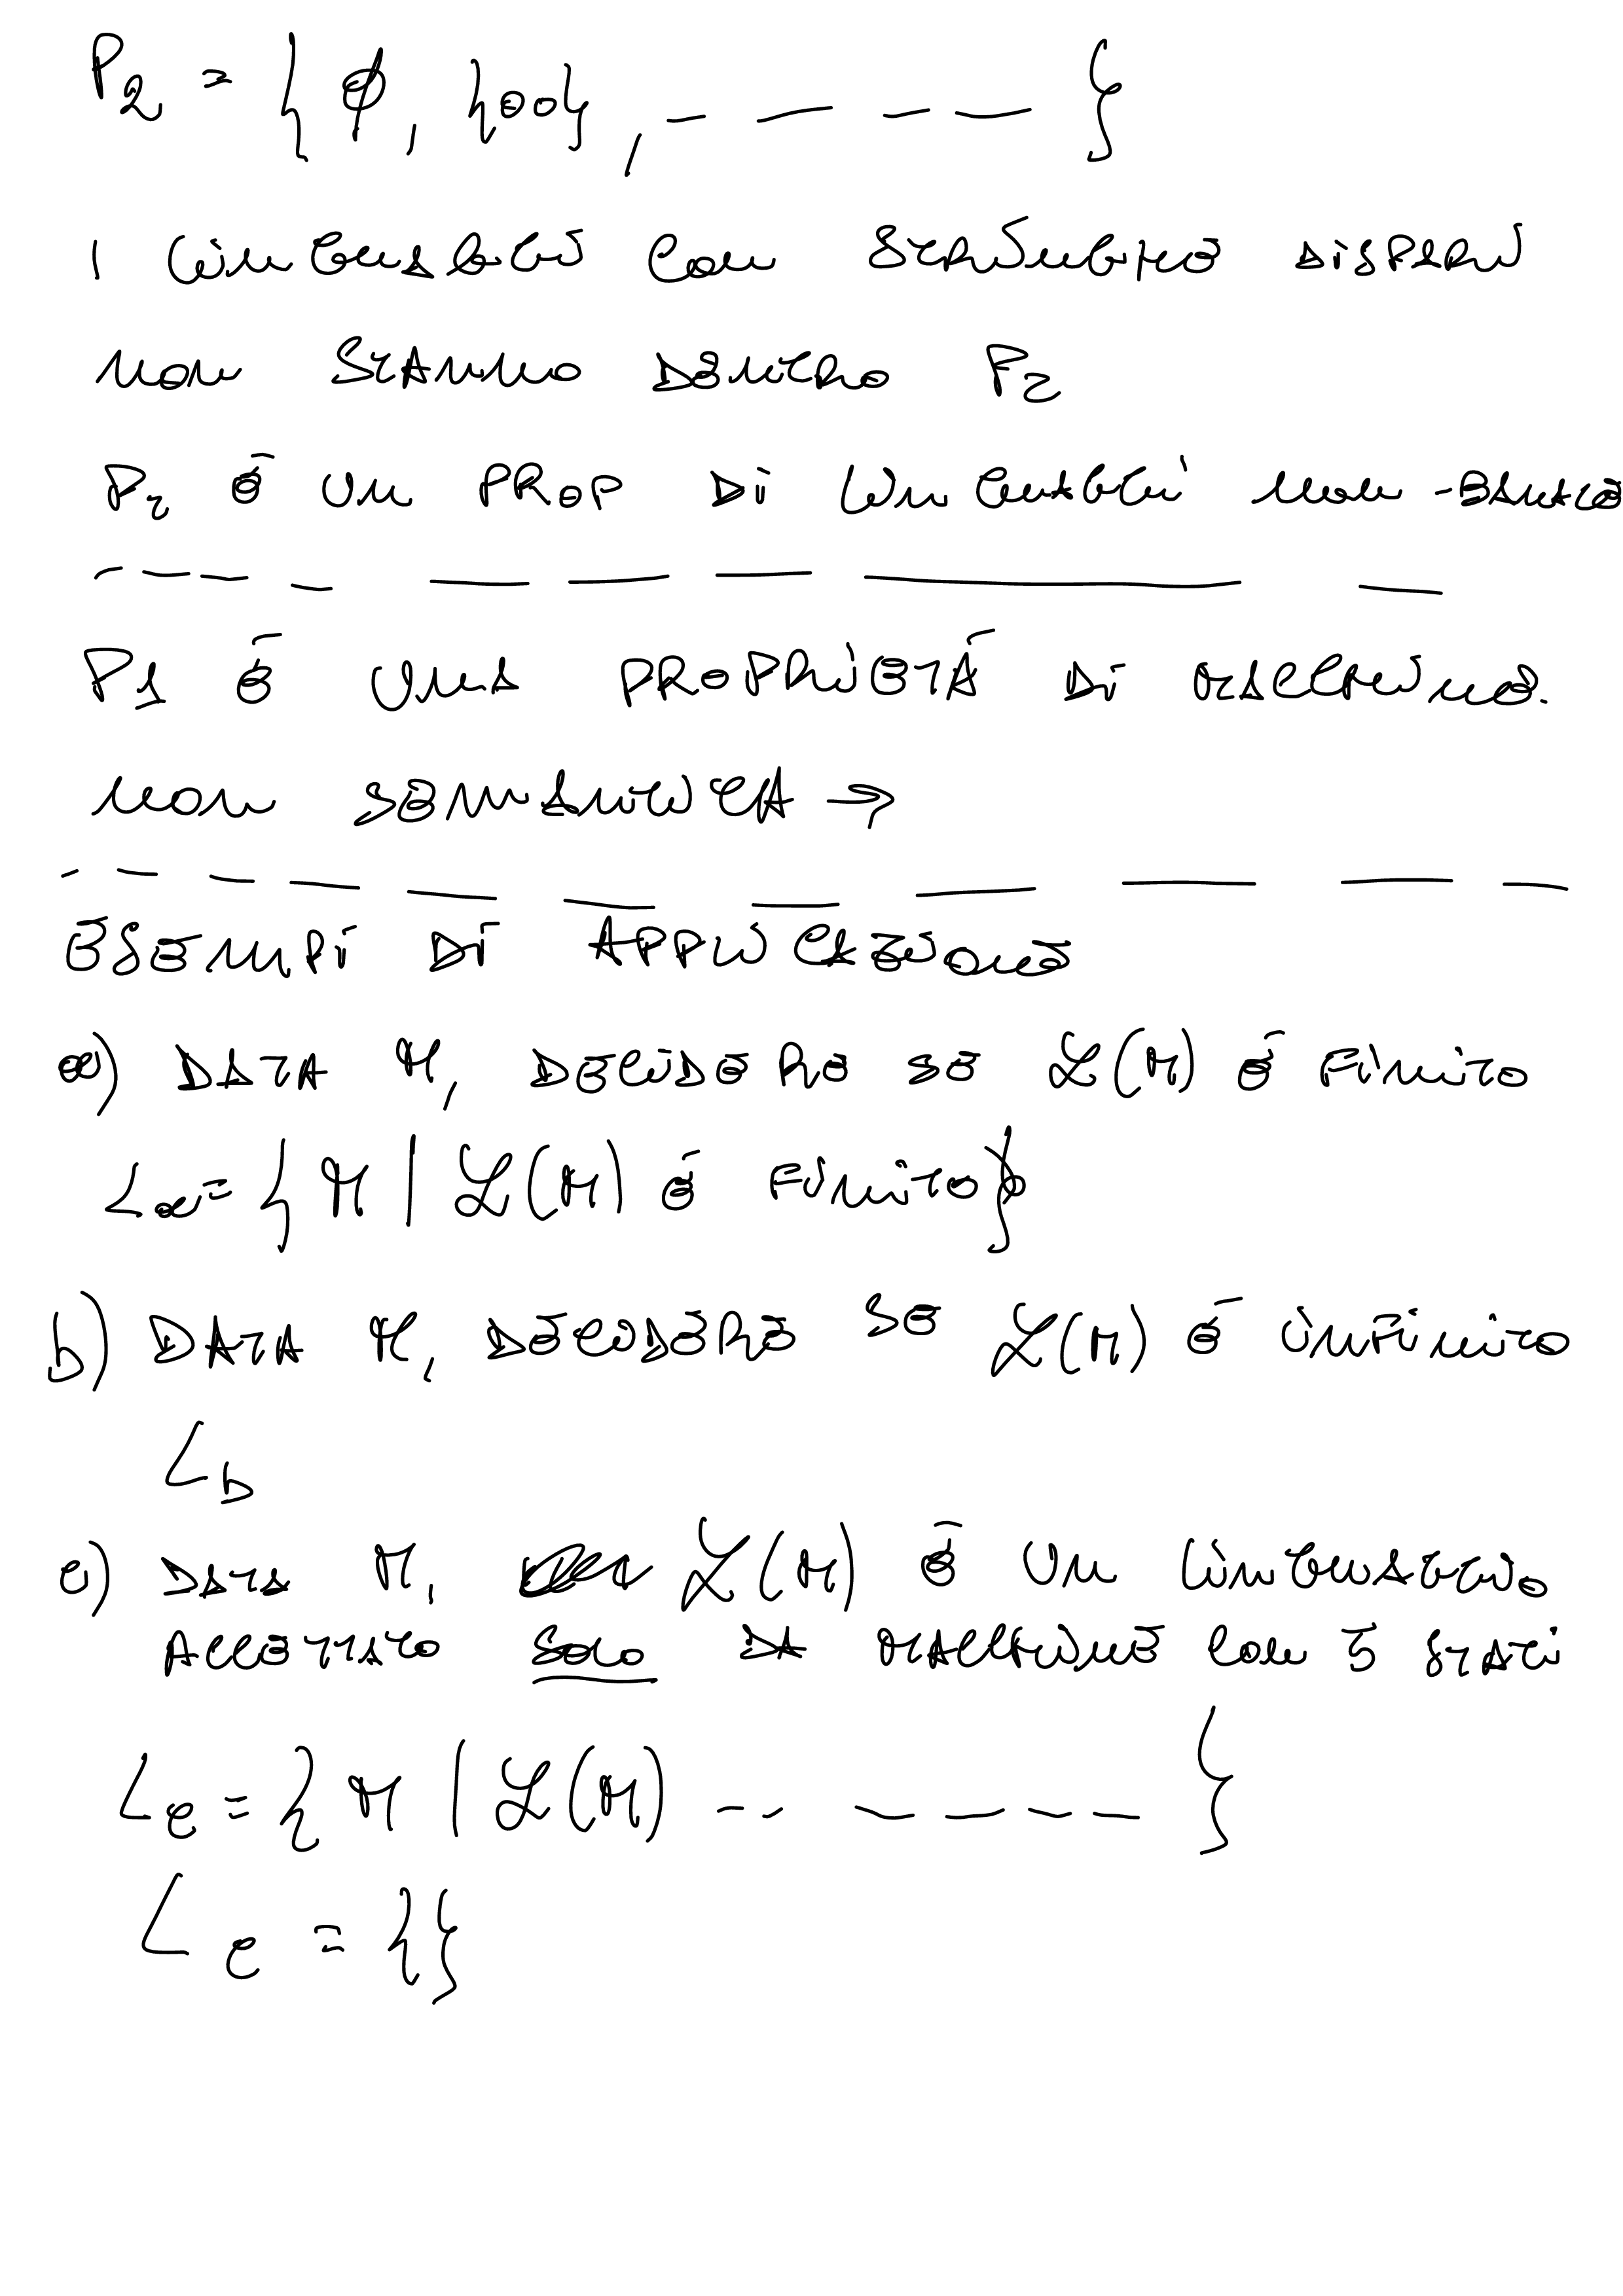 P2 = { ∅, {00}, - - - - }
I LINGUAGGI CON STRINGHE DISPARI
NON STANNO DENTRO P2
P2 È UN PROP DI LINGUAGGI NON-BANALE
P1 È UNA PROPRIETÀ DI MACCHINE.
NON SEMANTICA →
ESEMPI DI APPLICAZIONE
a) DATA M, DECIDERE SE L(M) È FINITO
La = { M | L(M) È FINITO }
b) DATA M, DECIDERE SE L(M) È INFINITO
Lb
c) DATA M, L(M) È UN LINGUAGGIO
ACCETTATO SOLO DA MACCHINE CON 5 STATI
Lc = { M | L(M) - - - - - - }
Lc = {}